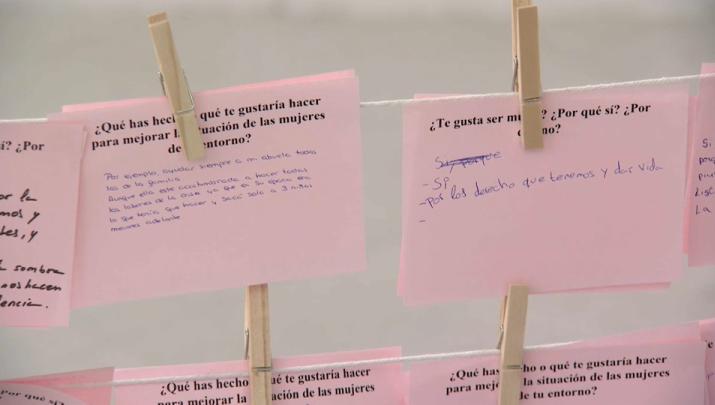 í? ¿Por
or la
mos y
tes, y
sombra
nos hacen
lencia.
¿Qué has hec qué te gustaría hacer
para mejorar l situación de las mujeres
de entorno?
Por ejemplo, ayudar siempre a mi abuela todas
las de la familia
Aunque ella este acostumbrada a hacer todas
las labores de la casa ya que en su época era
lo que tenía que hacer y sacó sola a 3 niños
menores adelante
¿Te gusta ser mu ? ¿Por qué sí? ¿Por
no?
- Sí
- por los derecho que tenemos y dar vida
-
Si
La
Por qué sí?
¿Qué has hecho ué te gustaría hacer
para mejorar la ación de las mujeres
¿Qué has ho o qué te gustaría hacer
para mej la situación de las mujeres
de tu entorno?
¿Te